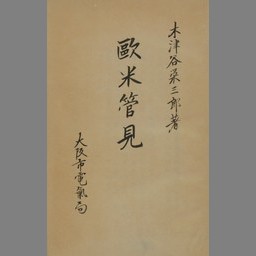 木津谷栄三郎著
歐米管見
大阪市電氣局